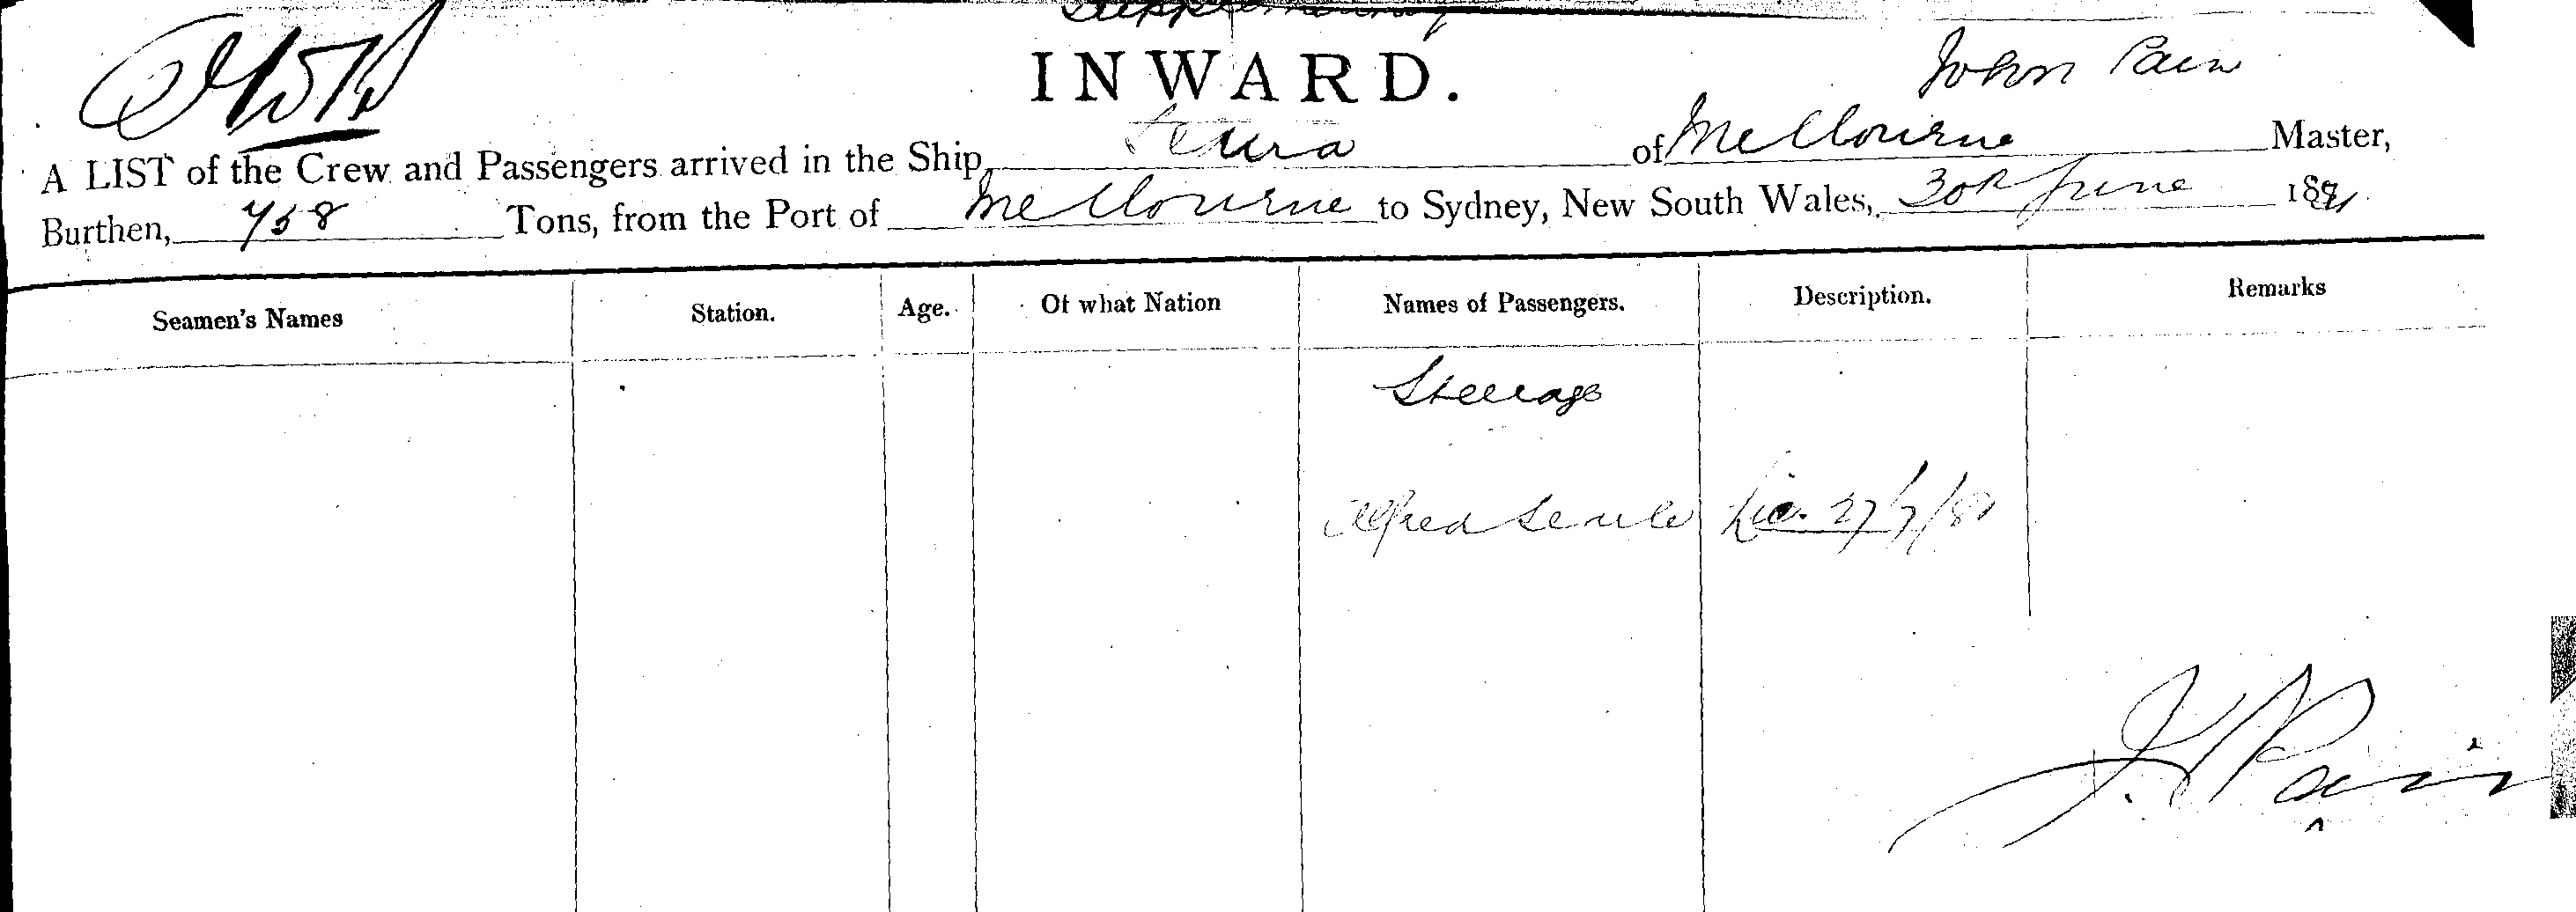 Supplementary
INWARD.
John Pain
A LIST of the Crew and Passengers arrived in the Ship, of Melbourne Master,
Burthen, 758 Tons, from the Port of Melbourne to Sydney, New South Wales, 30th June 1891
Seamen's Names Station. Age. Of what Nation Names of Passengers. Description. Remarks
Steerage
Alfred
J. Pain